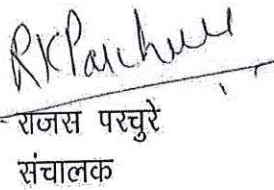 RKParchure
राजस परचुरे
संचालक